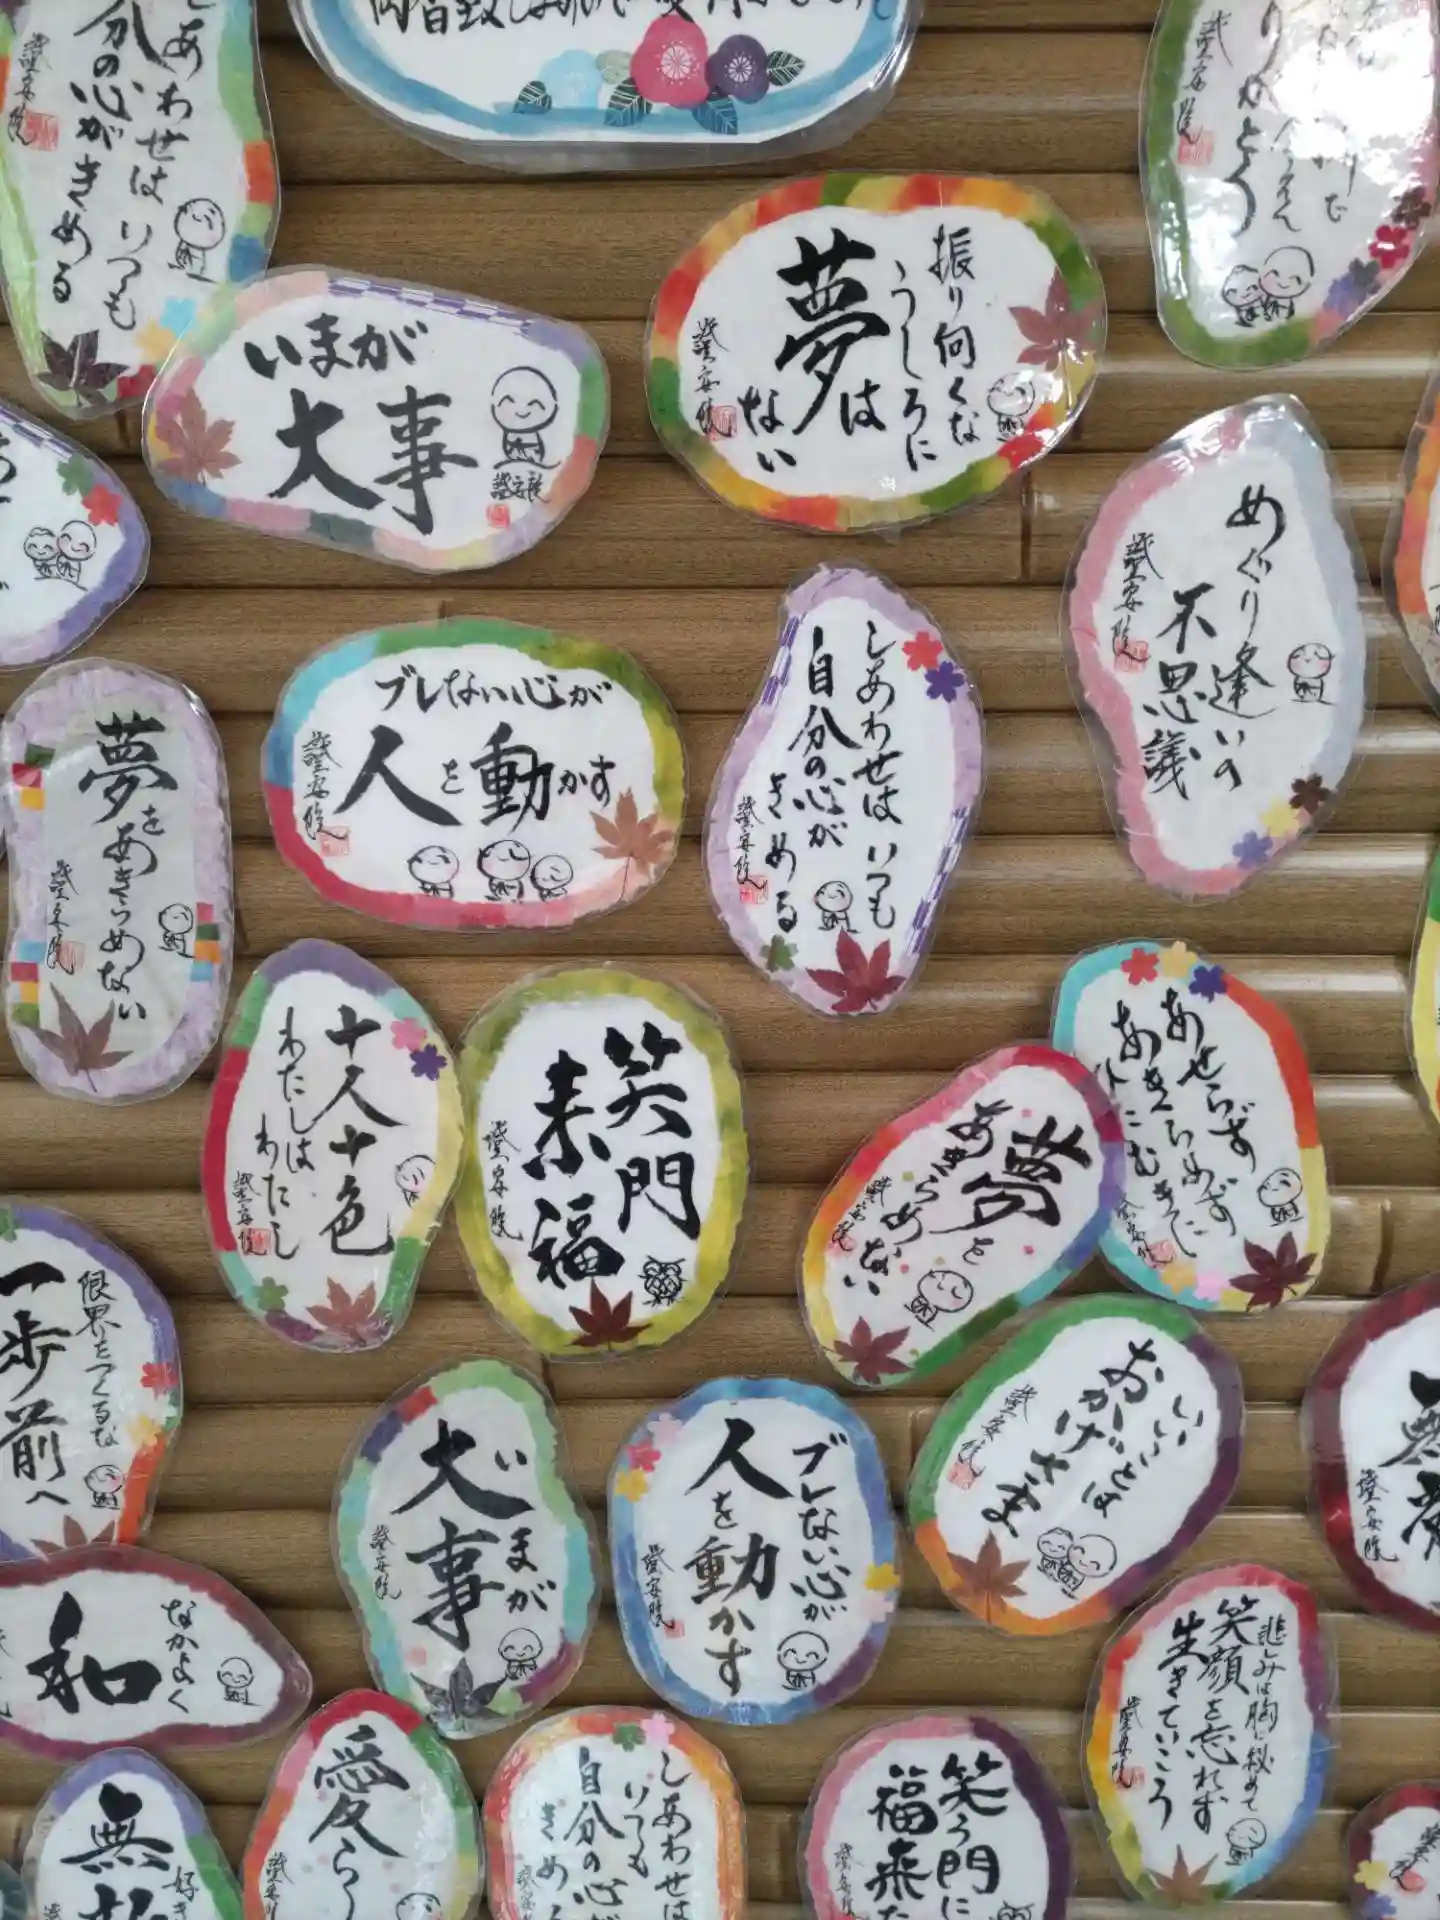 しあわせは いつも
自分の心が
きめる
證安院
いまが
大事
證安院
振り向くな
うしろに
夢は
ない
證安院
ありがとう
めぐり逢いの
不思議
證安院
夢を
あきらめない
證安院
ブレない心が
人を動かす
證安院
しあわせは いつも
自分の心が
きめる
證安院
十人十色
わたしは
わたし
證安院
笑門
来福
證安院
夢を
あきらめない
證安院
あせらず
あきらめず
限界をつくるな
一歩前へ
いまが
大事
證安院
ブレない心が
人を動かす
證安院
いいことは
おかげさま
證安院
和
なかよく
悲しみは胸に秘めて
笑顔を忘れず
生きていこう
證安院
無
好き
愛
證安院
しあわせは
いつも
自分の心が
きめる
笑う門に
福来た
證安院
證安院